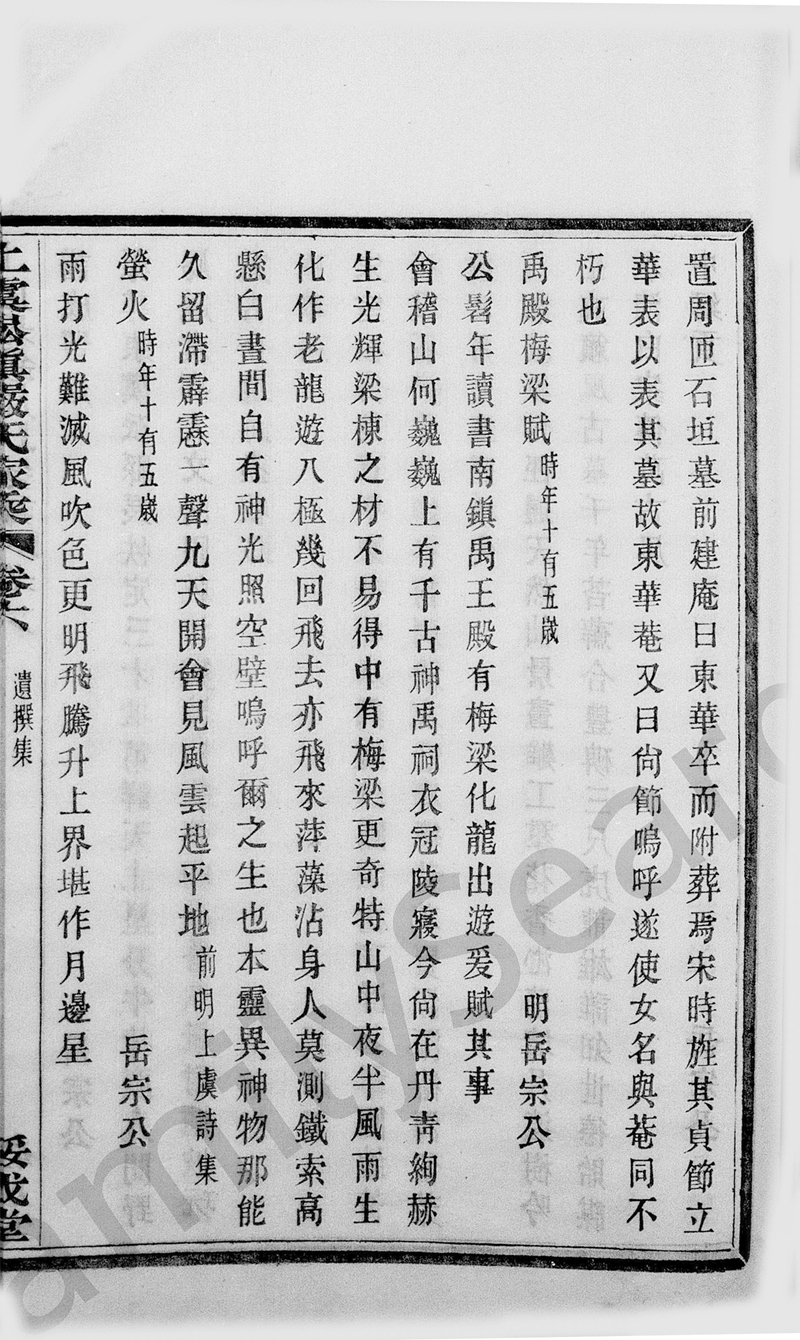 置周匝石垣墓前建庵曰東華卒而附葬焉宋時旌其貞節立
華表以表其墓故東華菴又曰尙節嗚呼遂使女名與菴同不
朽也
禹殿梅梁賦 時年十有五歲 明岳宗公
公髫年讀書南鎭禹王殿有梅梁化龍出遊爰賦其事
會稽山何巍巍上有千古神禹祠衣冠陵寢今尙在丹靑絢赫
生光輝梁棟之材不易得中有梅梁更奇特山中夜半風雨生
化作老龍遊八極幾回飛去亦飛來萍藻沾身人莫測鐵索高
懸白晝間自有神光照空壁嗚呼爾之生也本靈異神物那能
久留滯霹靂一聲九天開會見風雲起平地 前明上虞詩集
螢火 時年十有五歲 岳宗公
雨打光難滅風吹色更明飛騰升上界堪作月邊星
上虞松鎭嚴氏家乘 卷六 遺撰集
familysearch